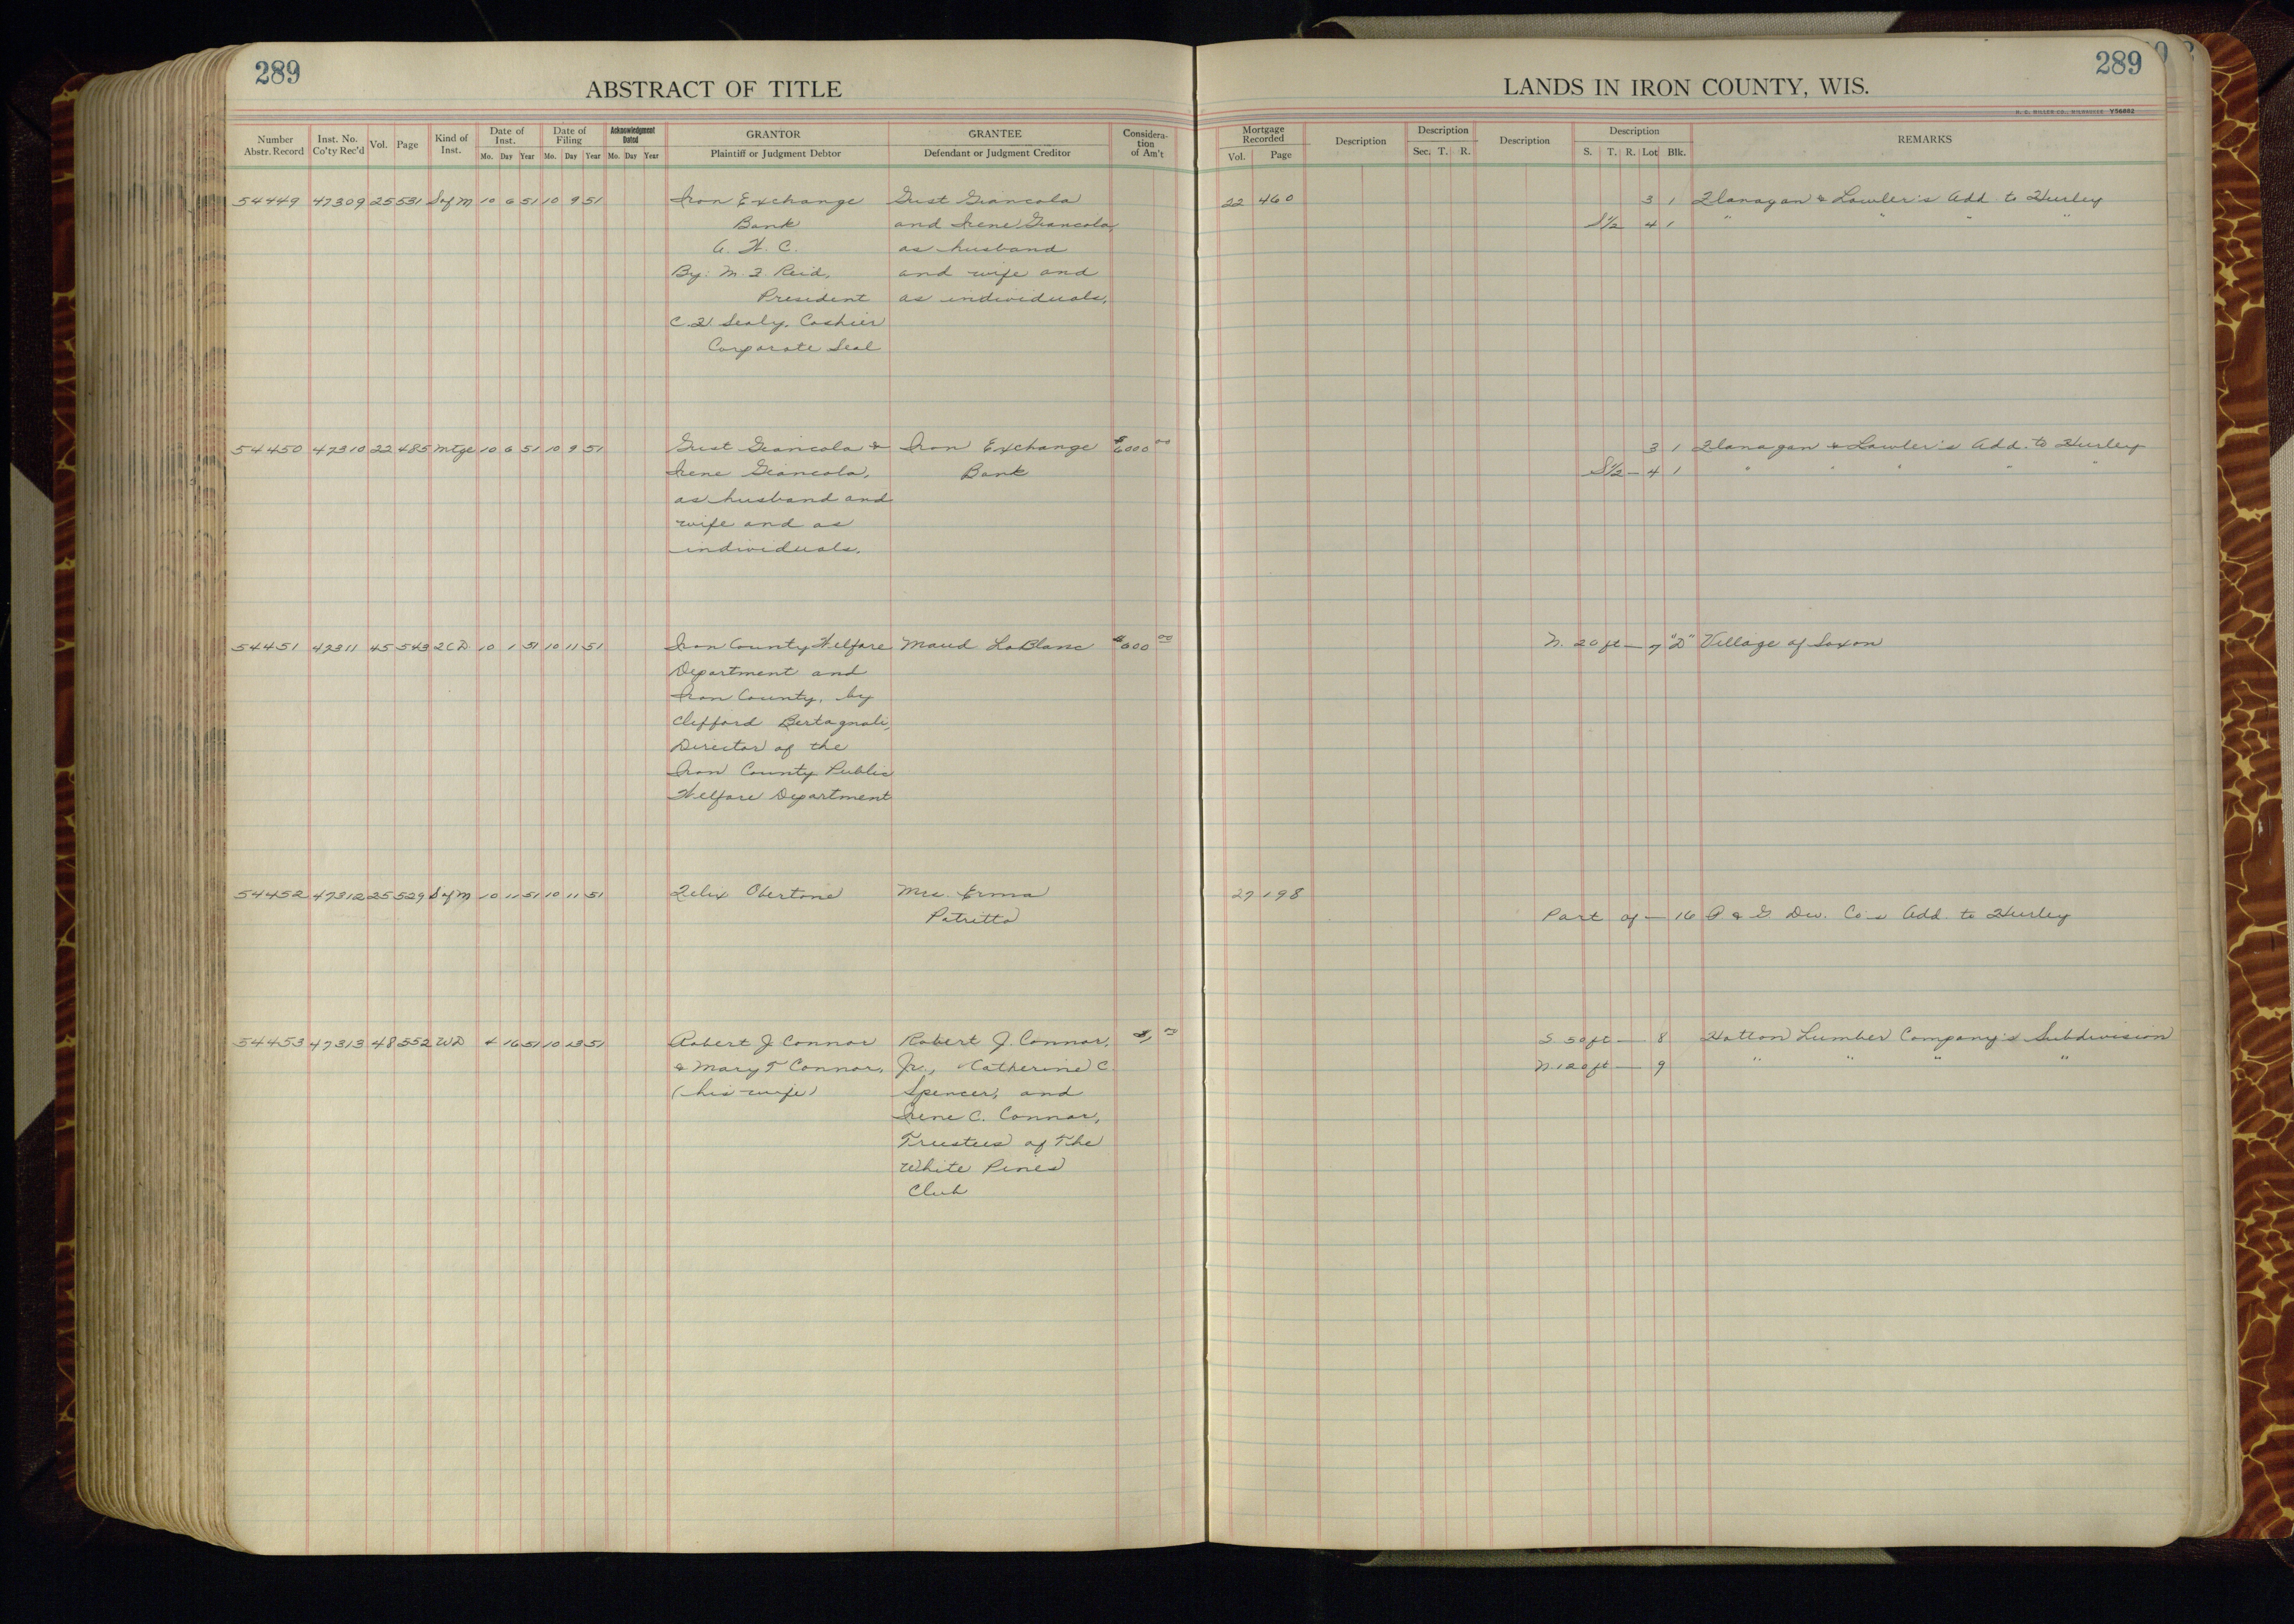 289
ABSTRACT OF TITLE
Number Abstr. Record Inst. No. Co'ty Rec'd Vol. Page Kind of Inst. Date of Inst. Mo. Day Year Date of Filing Mo. Day Year Acknowledgment Dated Mo. Day Year GRANTOR Plaintiff or Judgment Debtor GRANTEE Defendant or Judgment Creditor Considera-tion of Am't
54449 47309 25 531 Sof M 10 6 51 10 9 51 Iron Exchange Gust Giancola
Bank and Irene Giancola,
as husband
By: M. F. Reid, and wife and
President as individuals,
Cashier
Corporate Seal
54450 47310 22 485 Mtge 10 6 51 10 9 51 Gust Giancola & Iron Exchange $6000 00
Irene Giancola, Bank
as husband and
wife and as
individuals.
54451 47311 45 543 2CD 10 1 51 10 11 51 Iron County Welfare Maud LaBlanc $600 00
Department and
Iron County, by
Clifford Bertagnoli,
Director of the
Iron County Public
Welfare Department
54452 47312 25 529 Sof M 10 11 51 10 11 51 Felix Obertone Mrs. Erma
Patritto
54453 47313 48 552 WD 4 16 51 10 13 51 Robert J Connor Robert J. Connor, $1 00
& Mary T Connor, Jr., Catherine C.
(his wife) Spencer, and
Irene C. Connor,
Trustees of The
White Pines
Club
289
LANDS IN IRON COUNTY, WIS.
H. C. MILLER CO., MILWAUKEE V56882
Mortgage Recorded Vol. Page Description Description Sec. T. R. Description Description S. T. R. Lot Blk. REMARKS
22 460 3 1 Flanagan & Lawler's Add. to Hurley
S½ 4 1 " " " "
3 1 Flanagan & Lawler's Add. to Hurley
S½ — 4 1 " " " " "
N. 20 ft — 7 "D" Village of Saxon
27 198
Part of — 16 P & G Dev. Co's Add. to Hurley
S 50 ft — 8 Hatton Lumber Company's Subdivision
N. 120 ft — 9 " " " "